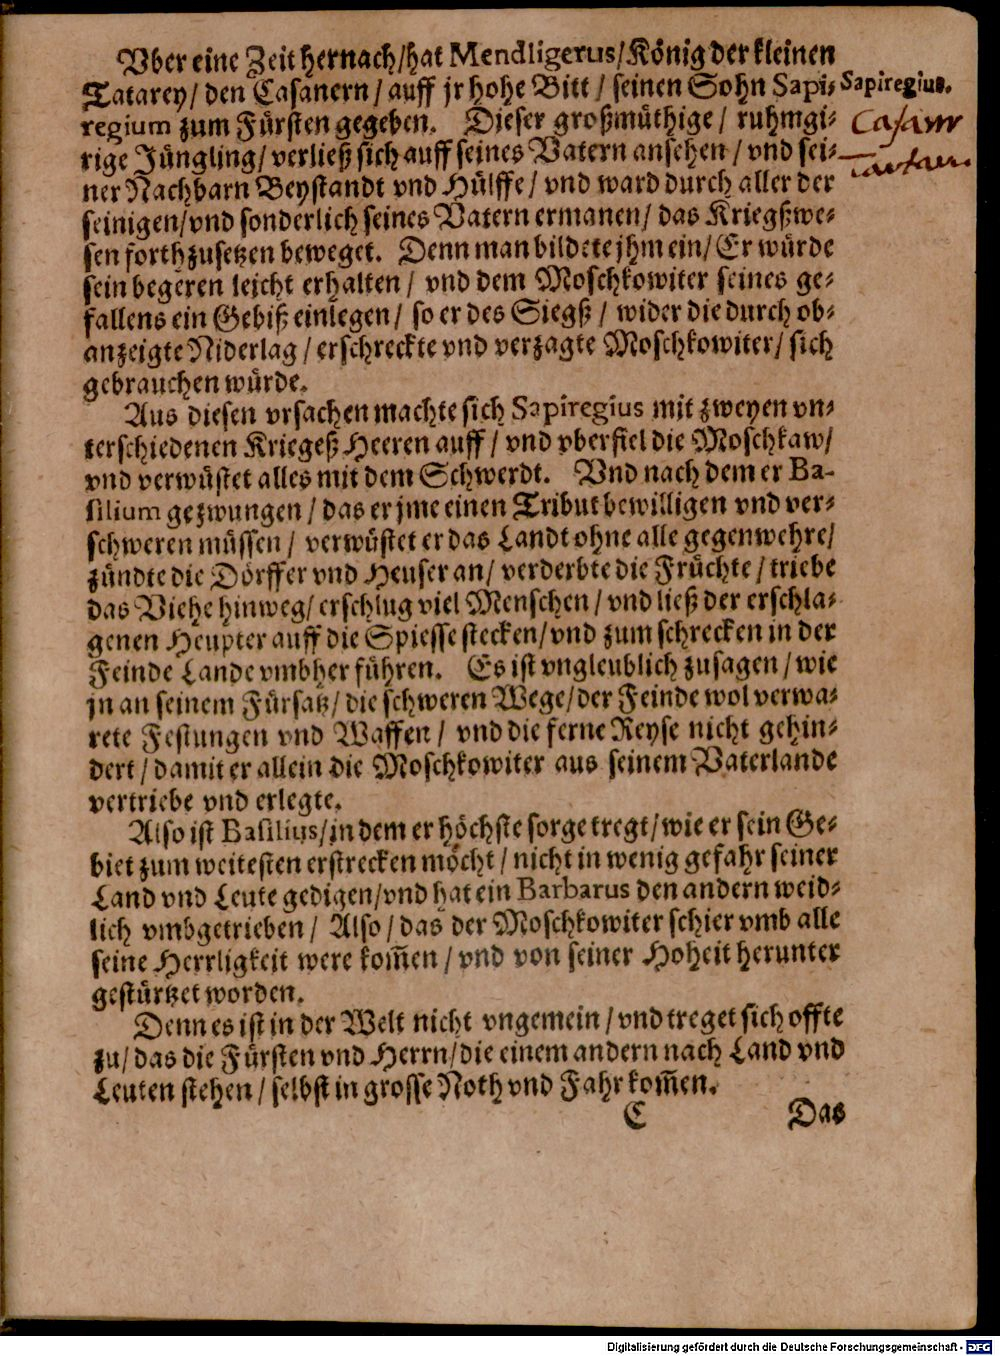 Vber eine Zeit hernach/hat Mendligerus/König der kleinen
Tatarey/ den Casanern/ auff jr hohe Bitt/ seinen Sohn Sapi-
Sapiregius.
regium zum Fürsten gegeben. Dieser großmüthige/ ruhmgi-
Casann
rige Jüngling/ verließ sich auff seines Vatern ansehen/ vnd sei-
ner Nachbarn Beystandt vnd Hülffe/ vnd ward durch aller der
seinigen/vnd sonderlich seines Vatern ermanen/ das Kriegßwe-
sen forth zusetzen beweget. Denn man bildete jhm ein/ Er würde
sein begeren leicht erhalten/ vnd dem Moschkowiter seines ge-
fallens ein Gebiß einlegen/ so er des Siegß/ wider die durch ob-
anzeigte Niderlag/ erschreckte vnd verzagte Moschkowiter/ sich
gebrauchen würde.
Aus diesen vrsachen machte sich Sapiregius mit zweyen vn-
terschiedenen Kriegeß Heeren auff/ vnd vberfiel die Moschkaw/
vnd verwüstet alles mit dem Schwerdt. Vnd nach dem er Ba-
silium gezwungen/ das er jme einen Tribut bewilligen vnd ver-
schweren müssen/ verwüstet er das Landt ohne alle gegenwehre/
zündte die Dörffer vnd Heuser an/ verderbte die Früchte/ triebe
das Viehe hinweg/ erschlug viel Menschen/ vnd ließ der erschla-
genen Heupter auff die Spiesse stecken/ vnd zum schrecken in der
Feinde Lande vmbher führen. Es ist vngleublich zusagen/ wie
jn an seinem Fürsatz/ die schweren Wege/ der Feinde wol verwa-
rete Festungen vnd Waffen/ vnd die ferne Reyse nicht gehin-
dert/ damit er allein die Moschkowiter aus seinem Vaterlande
vertriebe vnd erlegte.
Also ist Basilius/jn dem er höchste sorge tregt/ wie er sein Ge-
biet zum weitesten erstrecken möcht/ nicht in wenig gefahr seiner
Land vnd Leute gedigen/vnd hat ein Barbarus den andern weid-
lich vmbgetrieben/ Also/ das der Moschkowiter schier vmb alle
seine Herrligkeit were kom̄en/ vnd von seiner Hoheit herunter
gestürtzet worden.
Denn es ist in der Welt nicht vngemein/ vnd treget sich offte
zu/ das die Fürsten vnd Herrn/die einem andern nach Land vnd
Leuten stehen/ selbst in grosse Noth vnd Fahr kom̄en.
C Das
Digitalisierung gefördert durch die Deutsche Forschungsgemeinschaft - DFG